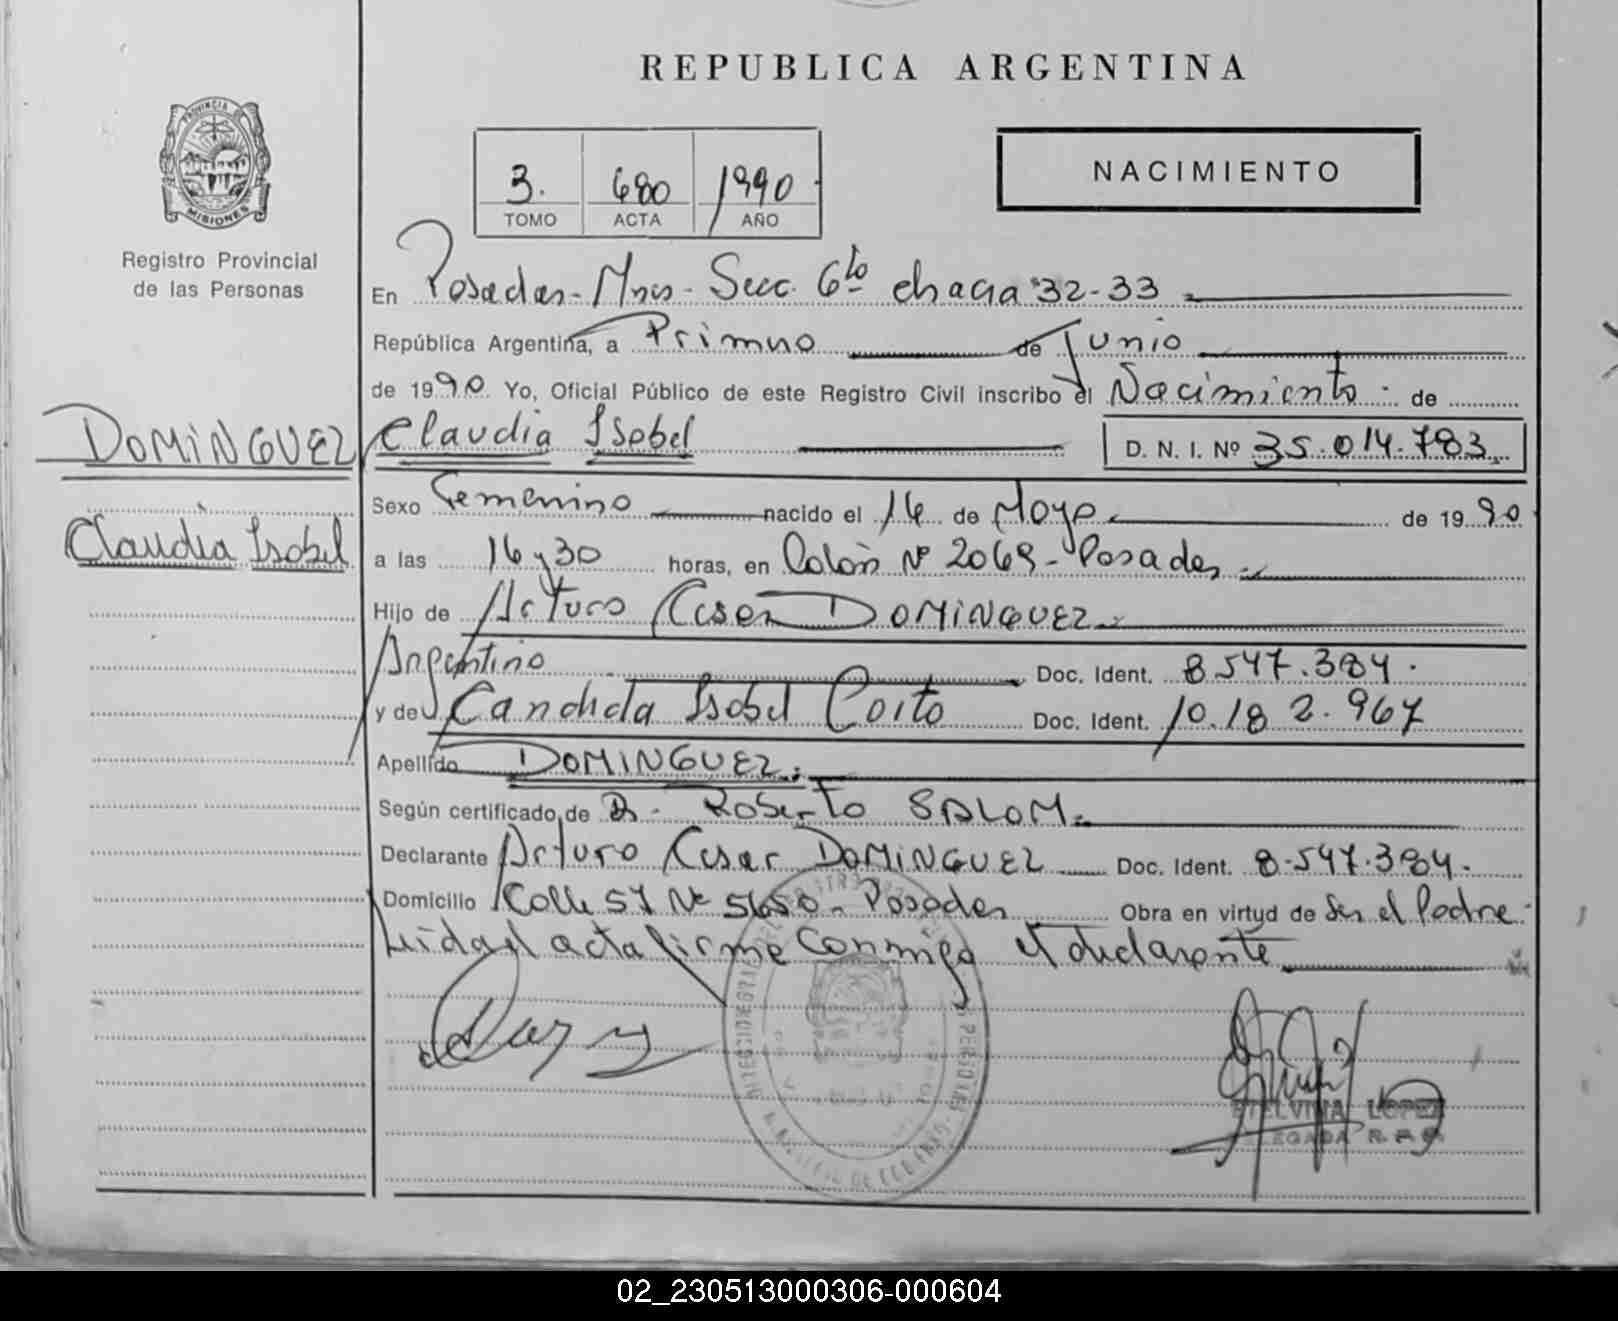 REPUBLICA ARGENTINA
PROVINCIA DE
MISIONES
Registro Provincial
de las Personas
3. 680 1990
TOMO ACTA AÑO
NACIMIENTO
En Posadas - Mnes - Secc. 6to chacra 32-33
República Argentina, a Primero de Junio
de 1990. Yo, Oficial Público de este Registro Civil inscribo el Nacimiento de
DOMINGUEZ Claudia Isabel D. N. I. Nº 35.014.783
Sexo Femenino nacido el 14 de Mayo de 1990
Claudia Isabel
a las 16 y 30 horas, en Colón Nº 2069 - Posadas
Hijo de Arturo Cesar DOMINGUEZ
Argentino Doc. Ident. 8.547.384.
y de Candida Isabel Coito Doc. Ident. 10.182.967
Apellido DOMINGUEZ
Según certificado de Dr. Roberto SALOM
Declarante Arturo Cesar DOMINGUEZ Doc. Ident. 8.547.384.
Domicilio Calle 57 Nº 5650 - Posadas Obra en virtud de Ser el Padre
Leida el acta firme conmigo el declarante
ETELVINA LOPEZ
DELEGADA R. P.
02_230513000306-000604